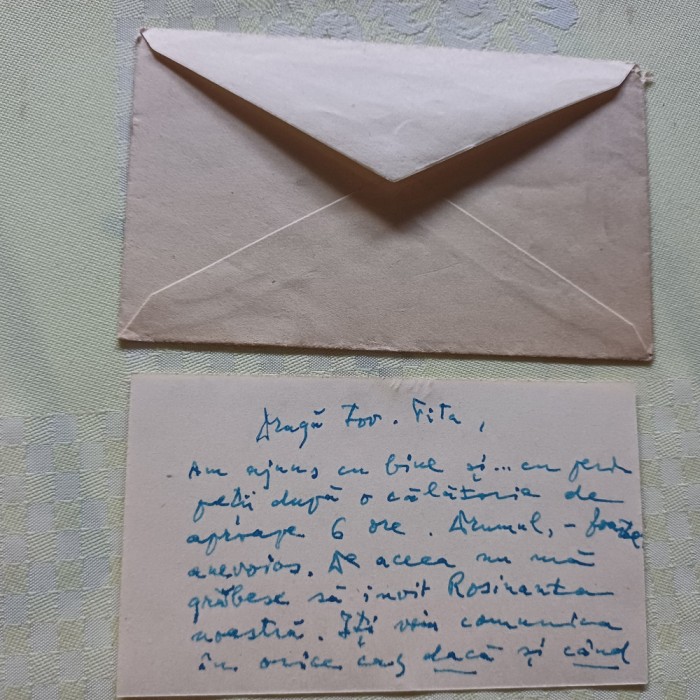 Dragă Tov. Fita,
Am ajuns cu bine și... cu peri-
peții după o călătorie de
aproape 6 ore. Drumul, - foarte
anevoios. De aceea nu mă
grăbesc să invit Rosinanta
noastră. Îți voi comunica
în orice caz dacă și când